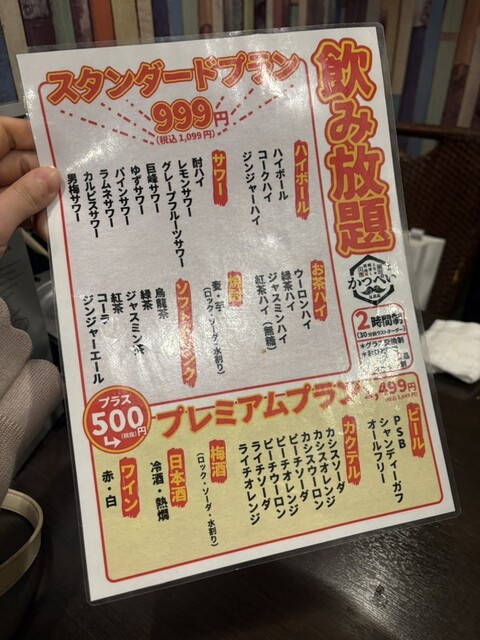 飲み放題
かっぺい
2時間制
(30分前ラストオーダー)
*グラス交換制
スタンダードプラン
999円
(税込1,099円)
ハイボール
ハイボール
コークハイ
ジンジャーハイ
サワー
酎ハイ
レモンサワー
グレープフルーツサワー
巨峰サワー
ゆずサワー
パインサワー
ラムネサワー
カルピスサワー
男梅サワー
お茶ハイ
ウーロンハイ
緑茶ハイ
ジャスミンハイ
紅茶ハイ(無糖)
焼酎
麦・芋
(ロック・ソーダ・水割り)
ソフトドリンク
烏龍茶
緑茶
ジャスミン茶
紅茶
コーラ
ジンジャーエール
プラス
500円
(税抜)
プレミアムプラン
,499円
ビール
PSB
シャンディーガフ
オールフリー
カクテル
カシスソーダ
カシスオレンジ
カシスウーロン
ピーチソーダ
ピーチオレンジ
ピーチウーロン
ライチソーダ
ライチオレンジ
梅酒
(ロック・ソーダ・水割り)
日本酒
冷酒・熱燗
ワイン
赤・白